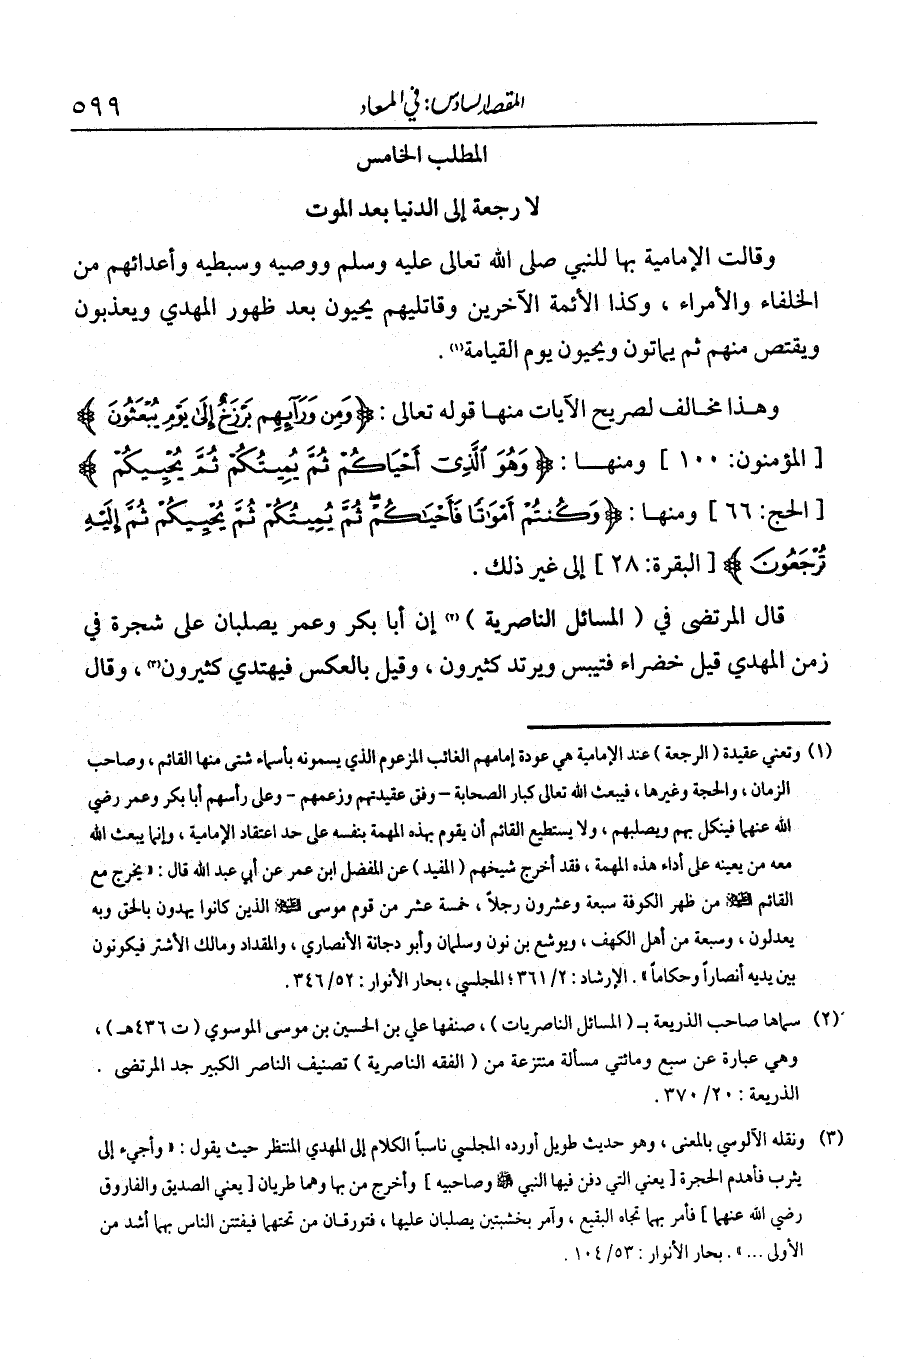 المقصد السادس: في المعاد ٥٩٩
المطلب الخامس
لا رجعة إلى الدنيا بعد الموت
وقالت الإمامية بها للنبي صلى الله تعالى عليه وسلم ووصيه وسبطيه وأعدائهم من
الخلفاء والأمراء ، وكذا الأئمة الآخرين وقاتليهم يحيون بعد ظهور المهدي ويعذبون
ويقتص منهم ثم يماتون ويحيون يوم القيامة(١) .
وهذا مخالف لصريح الآيات منها قوله تعالى : ﴿ وَمِن وَرَآئِهِم بَرْزَخٌ إِلَىٰ يَوْمِ يُبْعَثُونَ ﴾
[ المؤمنون: ١٠٠ ] ومنها : ﴿ وَهُوَ الَّذِىٓ أَحْيَاكُمْ ثُمَّ يُمِيتُكُمْ ثُمَّ يُحْيِيكُمْ ﴾
[ الحج: ٦٦ ] ومنها : ﴿ وَكُنتُمْ أَمْوَٰتًا فَأَحْيَٰكُمْ ۖ ثُمَّ يُمِيتُكُمْ ثُمَّ يُحْيِيكُمْ ثُمَّ إِلَيْهِ
تُرْجَعُونَ ﴾ [ البقرة: ٢٨ ] إلى غير ذلك .
قال المرتضى في ( المسائل الناصرية )(٢) إن أبا بكر وعمر يصلبان على شجرة في
زمن المهدي قيل خضراء فتيبس ويرتد كثيرون ، وقيل بالعكس فيهتدي كثيرون(٣) ، وقال
(١) وتعني عقيدة ( الرجعة ) عند الإمامية هي عودة إمامهم الغائب المزعوم الذي يسمونه بأسماء شتى منها القائم ، وصاحب
الزمان ، والحجة وغيرها ، فيبعث الله تعالى كبار الصحابة – وفق عقيدتهم وزعمهم – وعلى رأسهم أبا بكر وعمر رضي
الله عنهما فينكل بهم ويصلبهم ، ولا يستطيع القائم أن يقوم بهذه المهمة بنفسه على حد اعتقاد الإمامية ، وإنما يبعث الله
معه من يعينه على أداء هذه المهمة ، فقد أخرج شيخهم ( المفيد ) عن المفضل ابن عمر عن أبي عبد الله قال : « يخرج مع
القائم عليه السلام من ظهر الكوفة سبعة وعشرون رجلاً ، خمسة عشر من قوم موسى عليه السلام الذين كانوا يهدون بالحق وبه
يعدلون ، وسبعة من أهل الكهف ، ويوشع بن نون وسلمان وأبو دجانة الأنصاري ، والمقداد ومالك الأشتر فيكونون
بين يديه أنصاراً وحكاماً » . الإرشاد : ٢/ ٣٦١ ؛ المجلسي ، بحار الأنوار : ٥٢/ ٣٤٦ .
(٢) سماها صاحب الذريعة بـ ( المسائل الناصريات ) ، صنفها علي بن الحسين بن موسى الموسوي ( ت ٤٣٦هـ ) ،
وهي عبارة عن سبع ومائتي مسألة منتزعة من ( الفقه الناصرية ) تصنيف الناصر الكبير جد المرتضى .
الذريعة : ٢٠/ ٣٧٠ .
(٣) ونقله الآلوسي بالمعنى ، وهو حديث طويل أورده المجلسي ناسباً الكلام إلى المهدي المنتظر حيث يقول : « وأجيء إلى
يثرب فأهدم الحجرة [ يعني التي دفن فيها النبي ﷺ وصاحبيه ] وأخرج من بها وهما طريان [ يعني الصديق والفاروق
رضي الله عنهما ] فأمر بهما تجاه البقيع ، وآمر بخشبتين يصلبان عليها ، فتورقان من تحتهما فيفتتن الناس بهما أشد من
الأولى ... » . بحار الأنوار : ٥٣/ ١٠٤ .